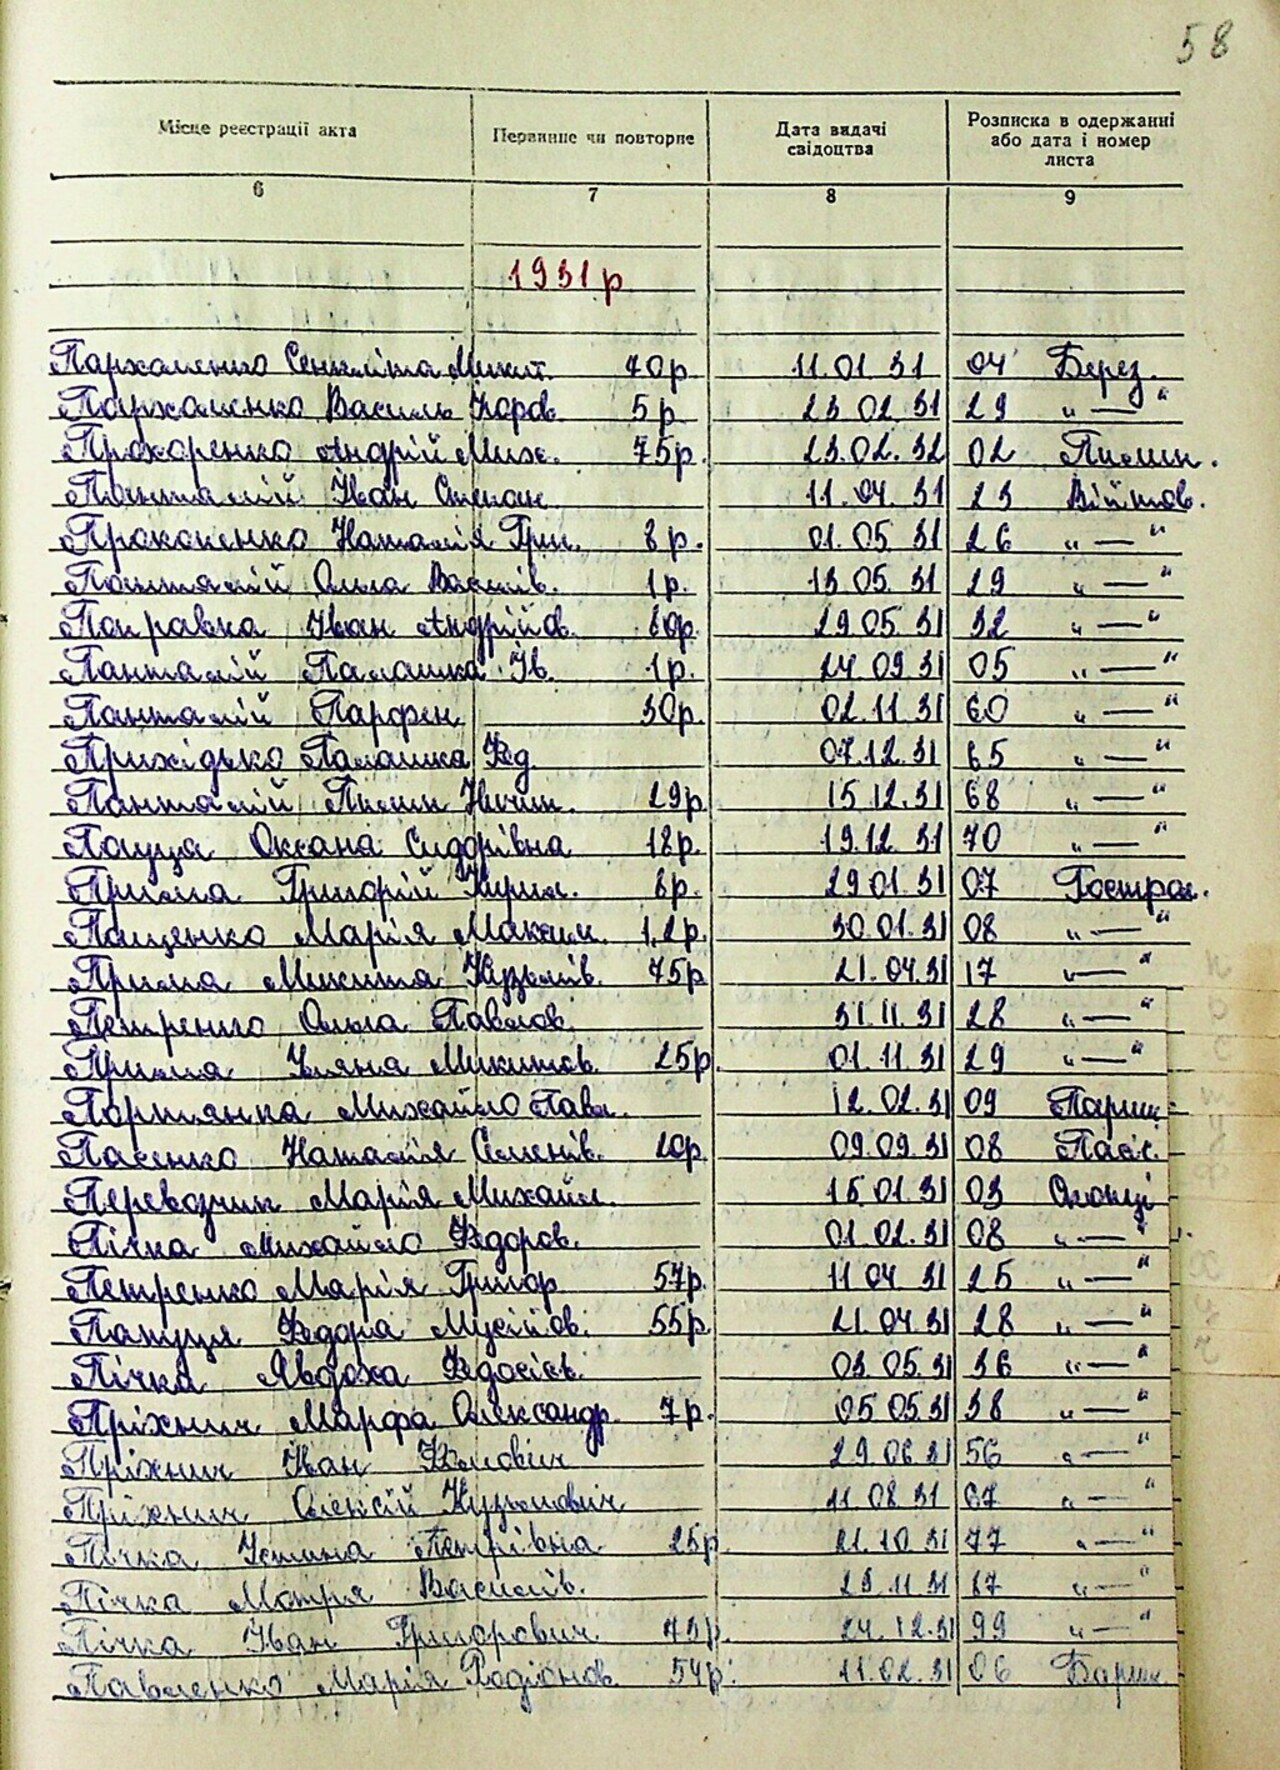 58
Місце реєстрації акта Первинне чи повторне Дата видачі свідоцтва Розписка в одержанні або дата і номер листа
6 7 8 9
1931 р
Пархоменко Микит. 70 р. 11.01 31 04 Берез.
Пархоменко Василь 5 р 23 02 31 29 „—"
Прохоренко Андрій Мих. 75 р. 23.02.32 02 Пилип.
Пантелій Іван Степан 11.04 31 23 Війтов.
Прокопенко Наталія Григ. 8 р. 01.05 31 26 „—"
Пантелій Ольга Василів. 1 р. 13.05 31 29 „—"
Поправка Іван Андрійов. 60 р. 29.05.31 32 „—"
Пантелій Палашка Ів. 1 р. 24.09.31 05 „—"
Пантелій Парфен 30 р. 02.11.31 60 „—"
Прихідько Палашка Фед. 07.12.31 65 „—"
Пантелій Пилип 29 р 15.12.31 68 „—"
Пацуца Оксана Сидорівна 18 р. 19.12.31 70 „—"
Прима Григорій Кирил. 6 р. 29 01.31 07 Гострол.
Пащенко Марія Максим. 1,2 р. 30.01.31 08 „—"
Прима Микита Кузьмів. 75 р 21.04.31 17 „—"
Петренко Ольга Павлов. 31.11.31 28 „—"
Прима Уляна Микитов. 25 р. 01.11.31 29 „—"
Портянка Михайло Павл. 12.02.31 09
Пасенко Наталія Семенів. 20 р. 09.09.31 08
Перевозчик Марія Михайл. 15.01.31 03
Пічка Михайло Федоров. 01.02.31 08 „—"
Петренко Марія Григор 57 р. 11 04 31 25 „—"
Пацуця Федора Мусійов. 55 р. 21.04.31 28 „—"
Пічка Явдоха Федосієв. 03.05.31 36 „—"
Пріхнич Марфа Олександр. 7 р. 05 05.31 38 „—"
Пріхнич Іван 29.06.31 56 „—"
Пріхнич Олексій Кузьмович 11.08.31 67 „—"
Пічка Устина Петрівна 25 р. 21.10.31 77 „—"
Пічка Мотря Василів. 23 11 31 87 „—"
Пічка Іван Григорович. 73 р. 24.12.31 99 „—"
Павленко Марія Родіонов. 54 р. 11.02.31 06